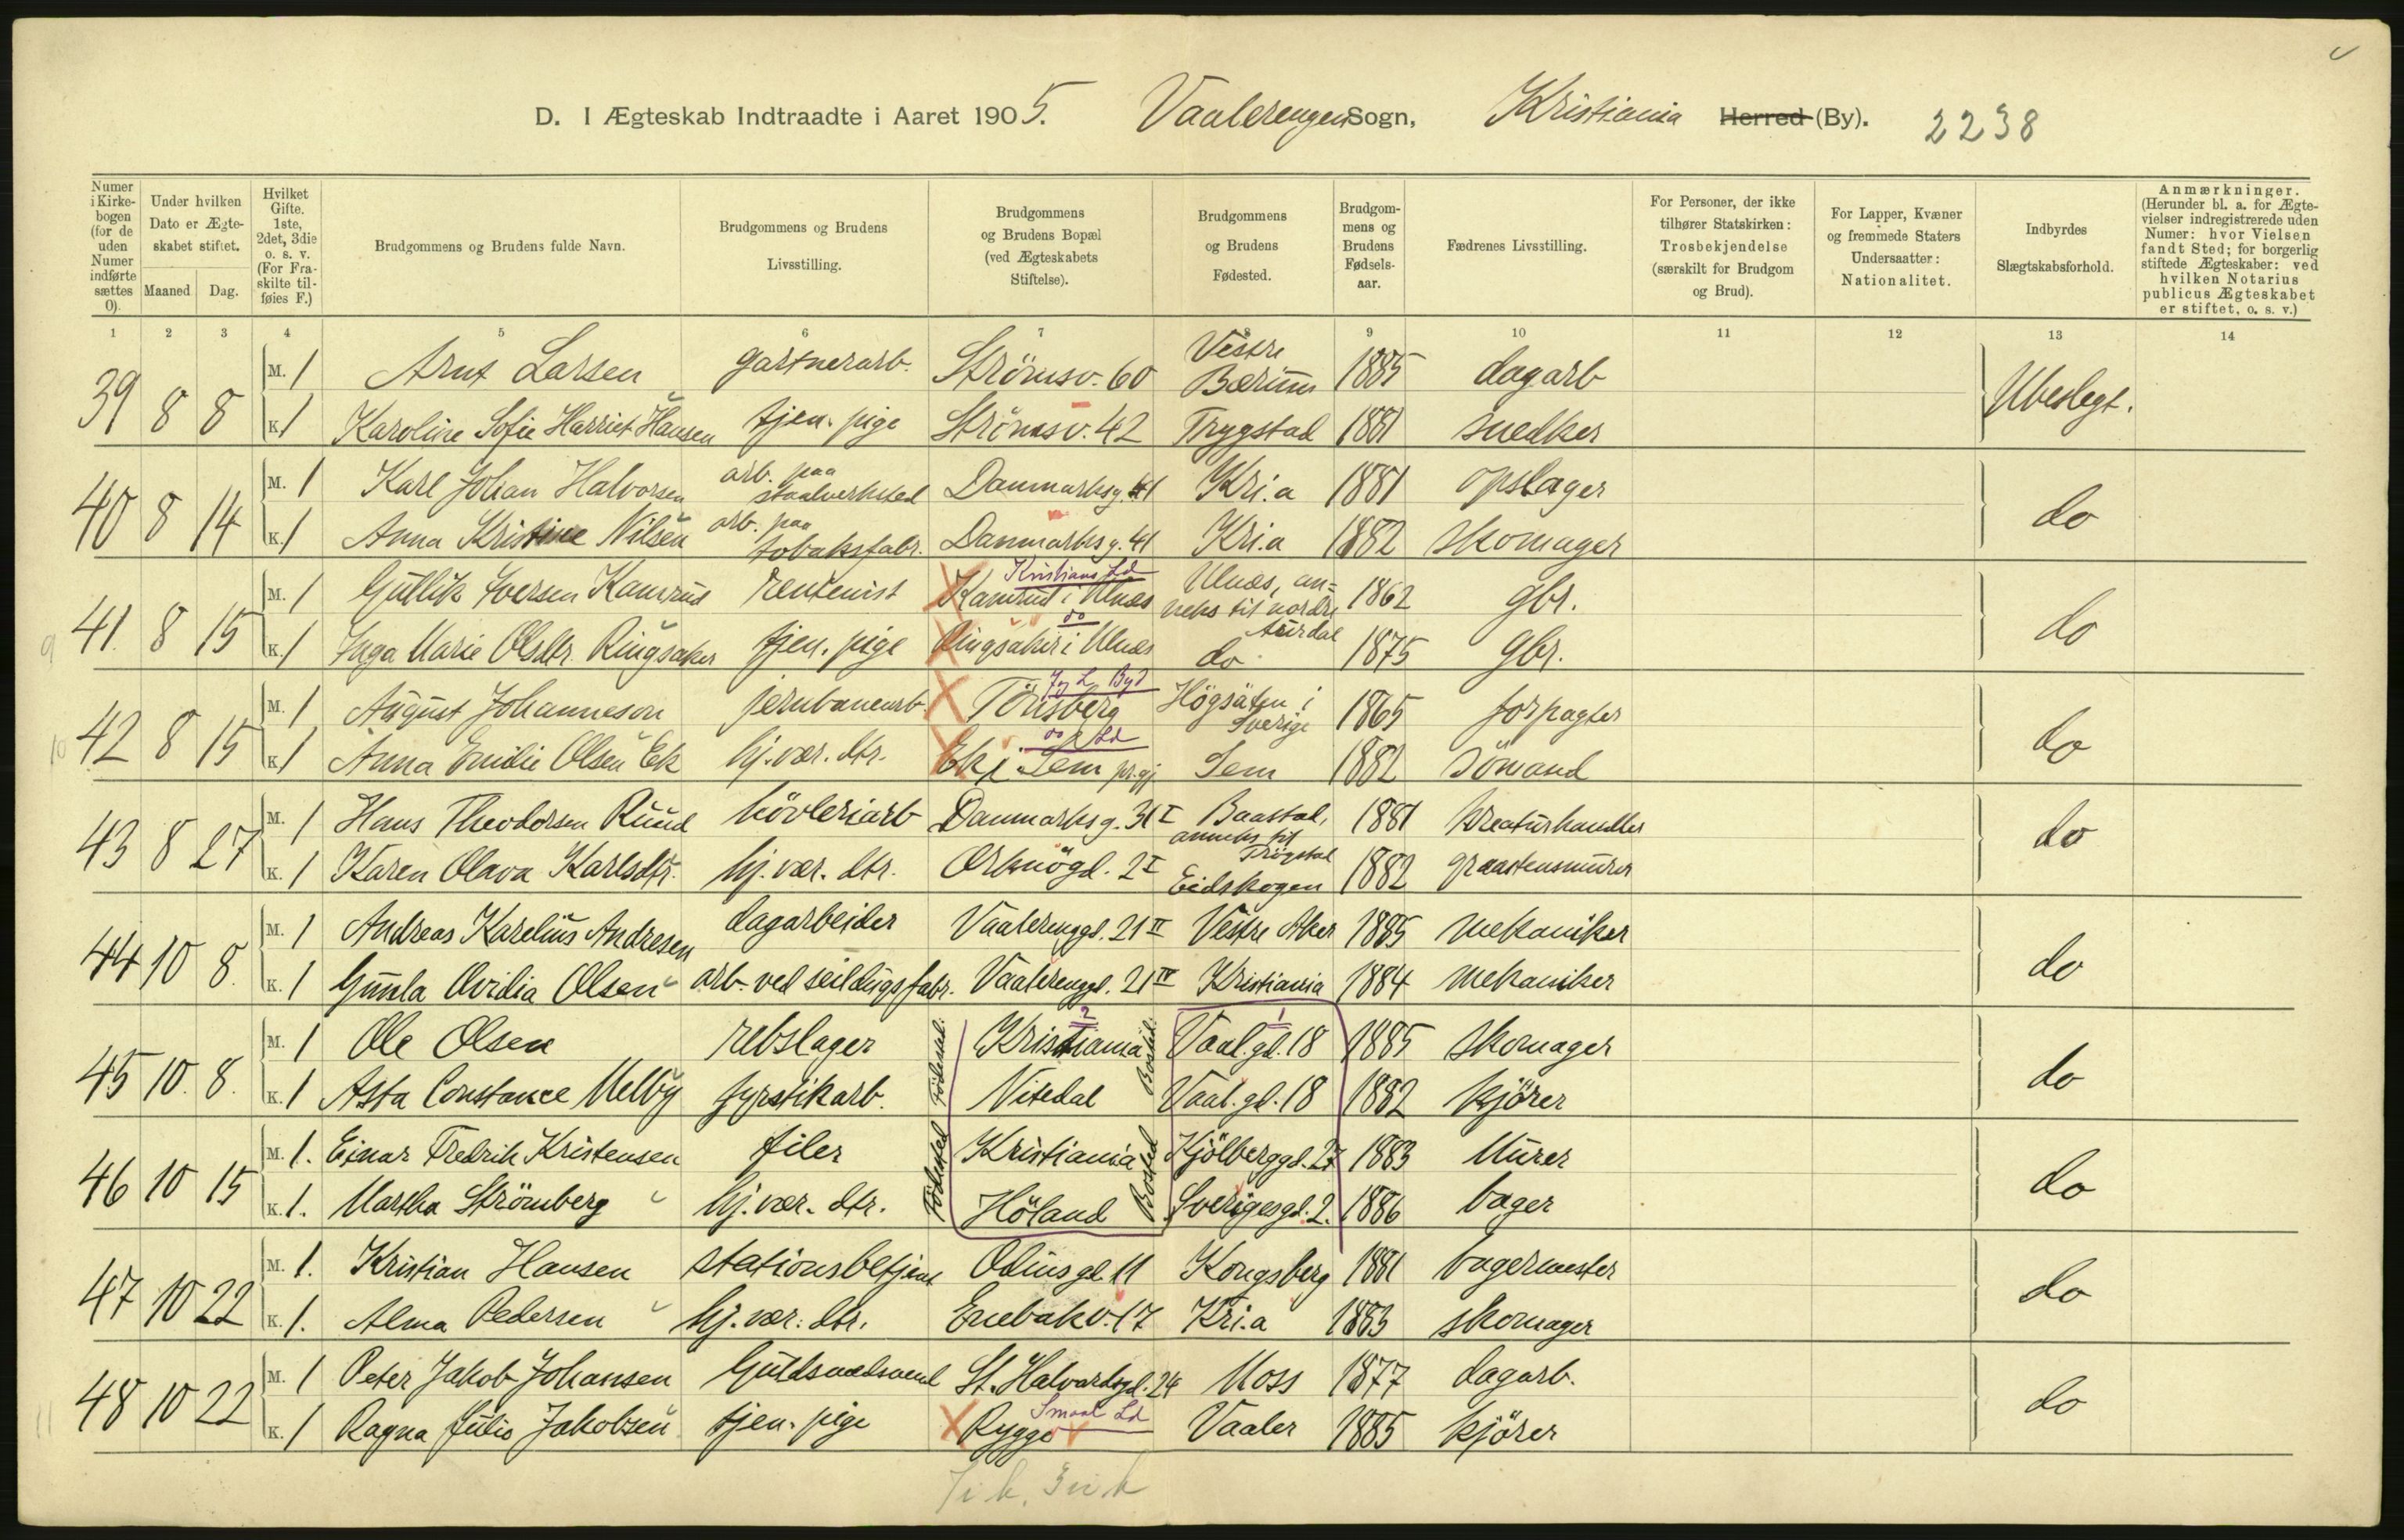 D. I Ægteskab Indtraadte i Aaret 1905. Vaalerengen Sogn, Kristiania Herred (By). 2238
Numer i Kirkebogen (for de uden Numer indførte sættes 0).
Under hvilken Dato er Ægteskabet stiftet.
Maaned Dag.
Hvilket Gifte. 1ste, 2det, 3die o. s. v. (For Fraskilte tilføies F.)
Brudgommens og Brudens fulde Navn.
Brudgommens og Brudens Livsstilling.
Brudgommens og Brudens Bopæl (ved Ægteskabets Stiftelse).
Brudgommens og Brudens Fødested.
Brudgommens og Brudens Fødselsaar.
Fædrenes Livsstilling.
For Personer, der ikke tilhører Statskirken: Trosbekjendelse (særskilt for Brudgom og Brud).
For Lapper, Kvæner og fremmede Staters Undersaatter: Nationalitet.
Indbyrdes Slægtskabsforhold.
Anmærkninger. (Herunder bl. a. for Ægtevielser indregistrerede uden Numer: hvor Vielsen fandt Sted; for borgerlig stiftede Ægteskaber: ved hvilken Notarius publicus Ægteskabet er stiftet, o. s. v.)
1 2 3 4 5 6 7 8 9 10 11 12 13 14
39 8 8 M. 1 Arnt Larsen gartnerarb. Strömsv. 60 Vestre Bærum 1885 dagarb Ubeslegt.
K. 1 Karoline Sofie Harriet Hansen tjen. pige Strömsv. 42 Trygstad 1881 snedker
40 8 14 M. 1 Karl Johan Halvorsen arb. paa staalverksted Danmarksg. 41 Kri.a 1881 opslager do
K. 1 Anna Kristine Nilsen arb. paa tobaksfabr. Danmarksg. 41 Kri.a 1882 skomager
41. 8 15 M. 1 Gullik Iversen Kamrud rentenist Kamrud i Ulnæs Kristians Ld Ulnæs, anneks til nordre Aurdal 1862 gbr. do
9 K. 1 Inga Marie Olsdtr. Ringsaker tjen. pige Ringsaker i Ulnæs do do 1875 gbr.
42 8 15 M. 1 August Johanneson jernbanearb. Tönsberg J. L. Byd Högsäten i Sverige 1865 forpagter do
10 K. 1 Anna Emilie Olsen Ek hj. vær. dtr. Ek i Sem pr.gj. do Ld Sem 1882 sömand
43 8 27 M. 1 Hans Theodorsen Ruud hövleriarb Danmarksg. 31 I Baastad, anneks til Trögstad 1881 kreaturhandler do
K. 1 Karen Olava Karlsdtr. hj. vær. dtr. Orknögd. 2 I Eidskogen 1882 graastensmurer
44 10 8. M. 1 Andreas Karelius Andresen dagarbeider Vaalerenggd. 21 II Vestre Aker 1885 mekaniker do
K. 1 Gunda Ovidia Olsen arb. ved seildugsfabr. Vaalerenggd. 21 IV Kristiania 1884 mekaniker
45 10. 8. M. 1 Ole Olsen rebslager Födested: Kristiania 2 Bosted: Vaal.gd. 18 1 1885 skomager do
K. 1 Asta Constance Melby fyrstikarb. Nitedal Vaal.gd. 18 1882 kjörer
46 10 15 M. 1. Einar Fredrik Kristensen filer Födested Kristiania Bosted Kjölberggd. 27 1883 Murer do
K. 1. Martha Strömberg hj. vær. dtr. Höland Sverigesgd. 2. 1886 bager
47 10 22 M. 1. Kristian Hansen stationsbetjent Odinsgd. 11 Kongsberg 1881 bagermester do
K. 1. Alma Pedersen hj. vær. dtr. Enebakv. 17 Kri.a 1883 skomager
48 10 22 M. 1 Peter Jakob Johansen Guldsmedsvend St. Halvardsgd. 24 Moss 1877 dagarb. do
11 K. 1 Ragna Julie Jakobsen tjen. pige Rygge Smaal. Ld Vaaler 1885 kjörer